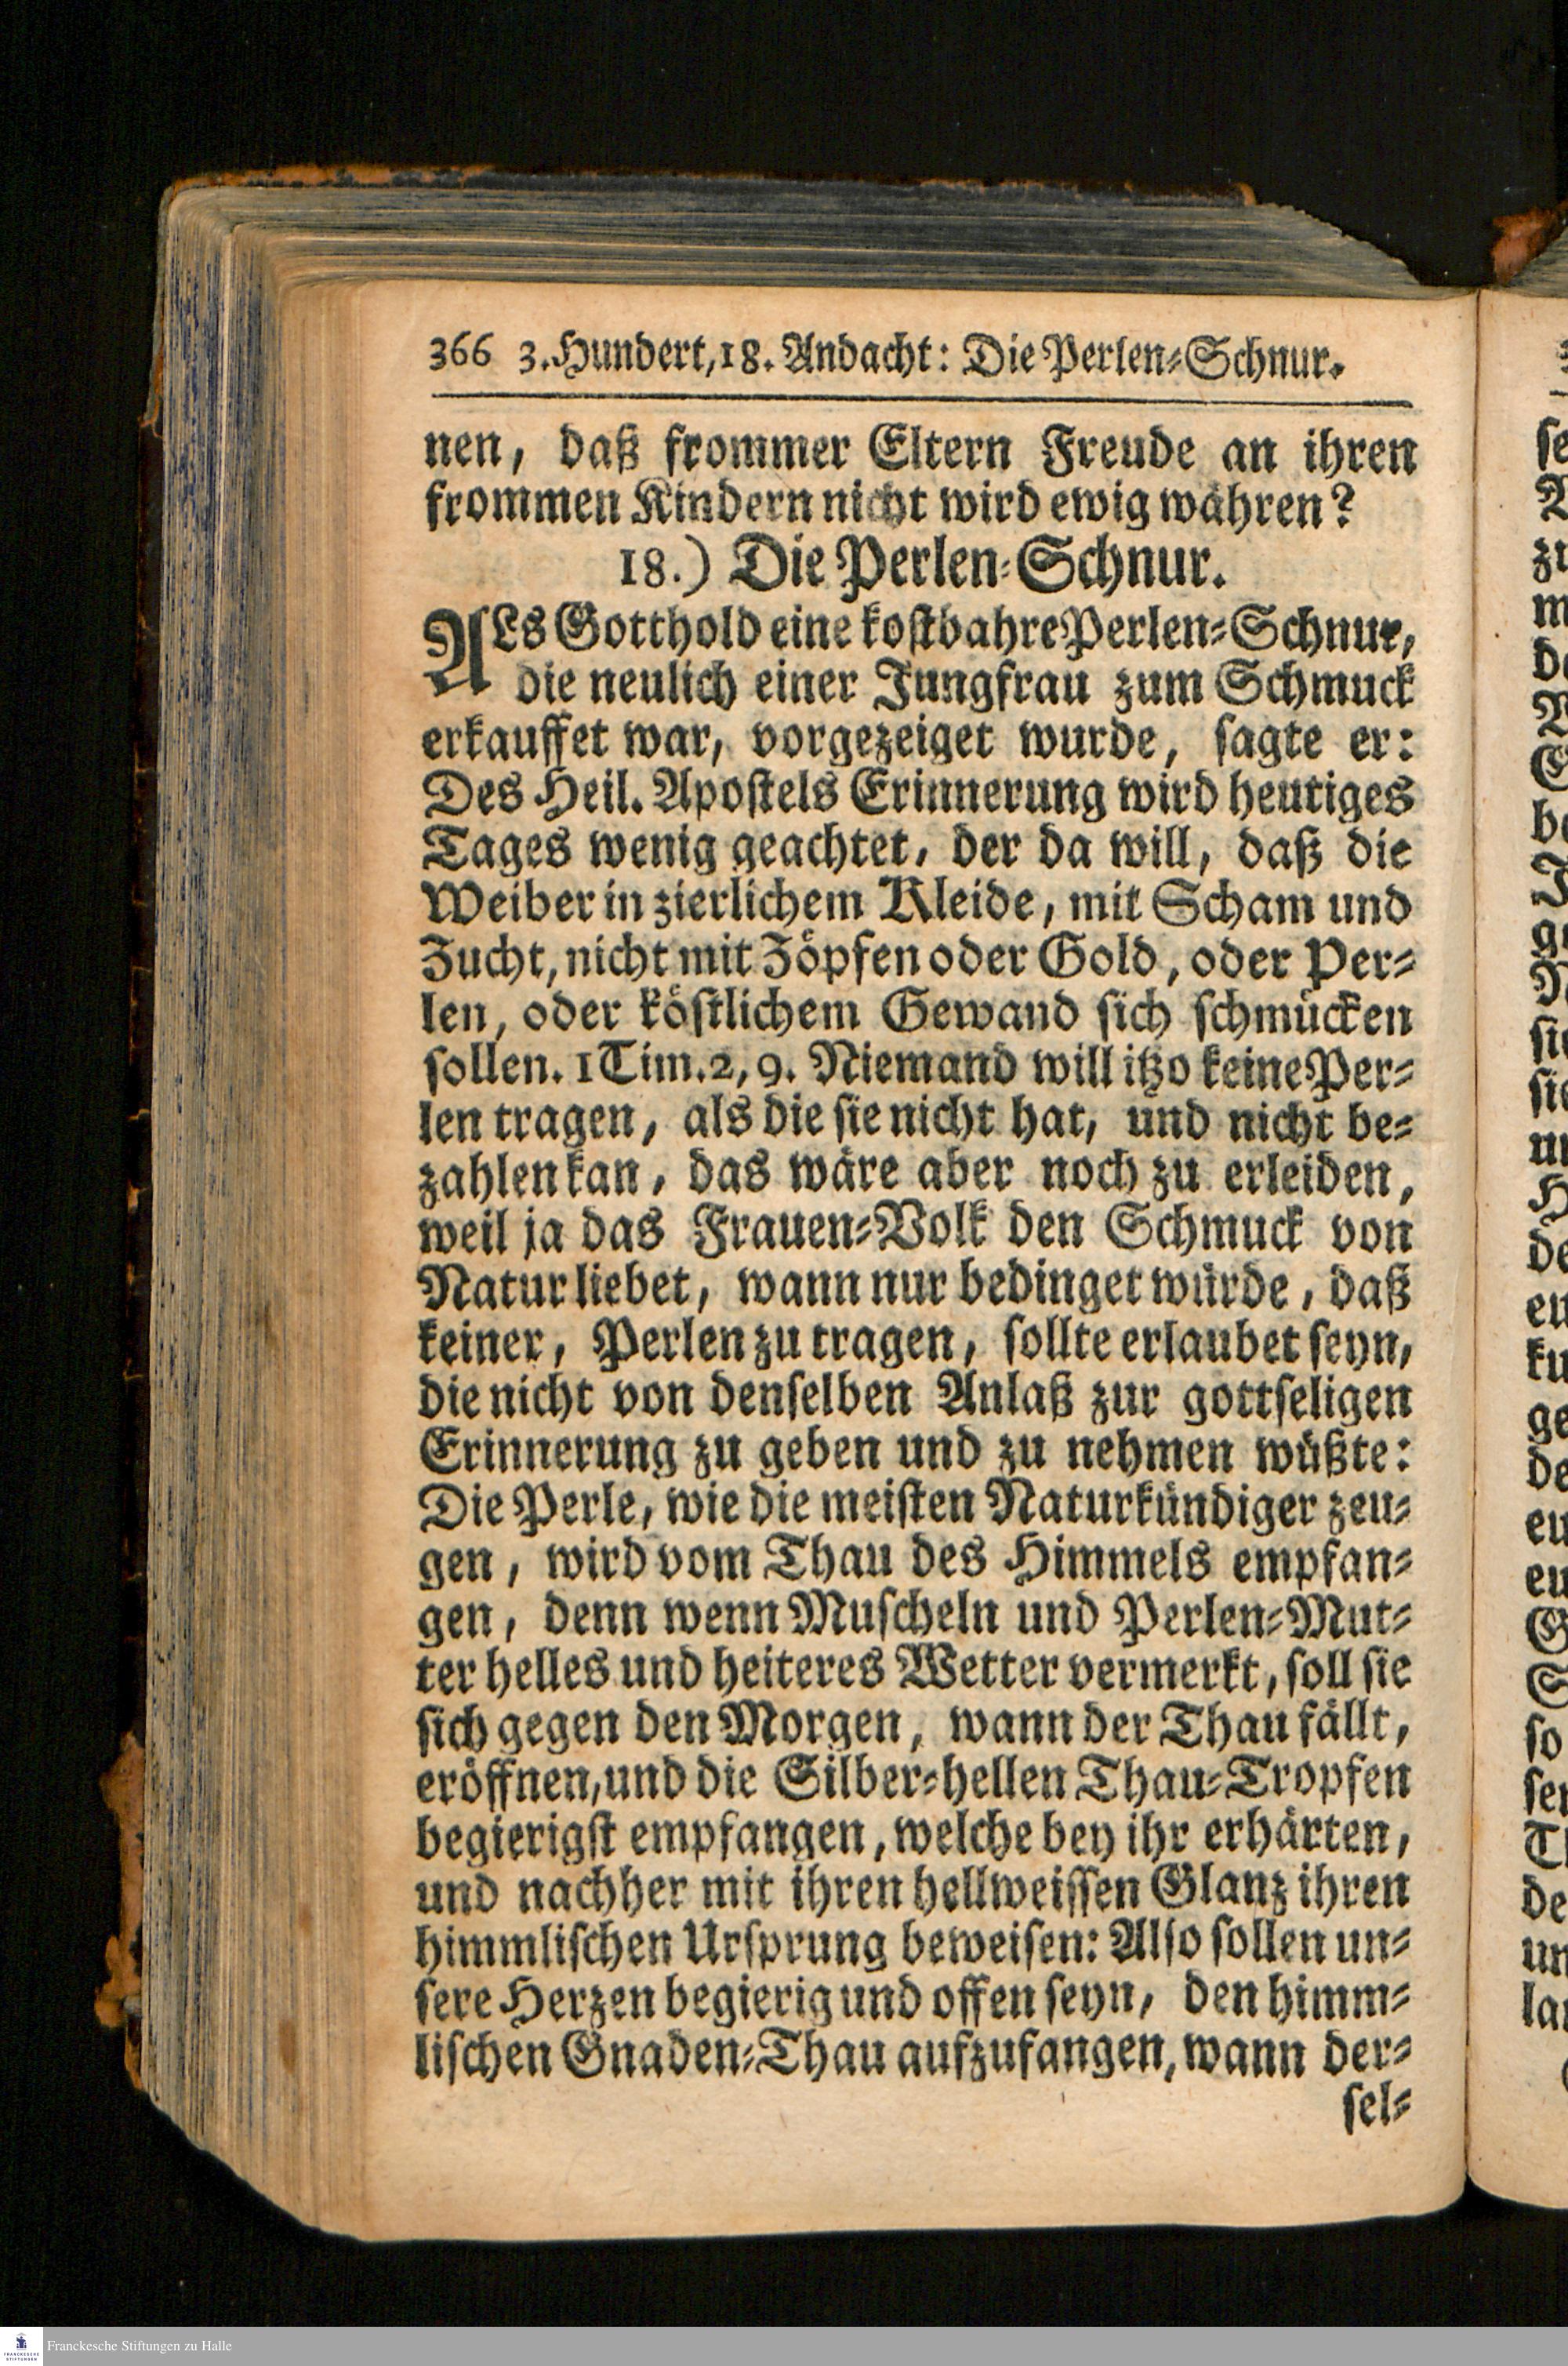 366 3. Hundert, 18. Andacht: Die Perlen-Schnur.
nen, daß frommer Eltern Freude an ihren
frommen Kindern nicht wird ewig währen?
18.) Die Perlen-Schnur.
ALs Gotthold eine kostbahre Perlen-Schnur,
die neulich einer Jungfrau zum Schmuck
erkauffet war, vorgezeiget wurde, sagte er:
Des Heil. Apostels Erinnerung wird heutiges
Tages wenig geachtet, der da will, daß die
Weiber in zierlichem Kleide, mit Scham und
Zucht, nicht mit Zöpfen oder Gold, oder Per-
len, oder köstlichem Gewand sich schmücken
sollen. 1 Tim. 2, 9. Niemand will itzo keine Per-
len tragen, als die sie nicht hat, und nicht be-
zahlen kan, das wäre aber noch zu erleiden,
weil ja das Frauen-Volk den Schmuck von
Natur liebet, wann nur bedinget würde, daß
keiner, Perlen zu tragen, sollte erlaubet seyn,
die nicht von denselben Anlaß zur gottseligen
Erinnerung zu geben und zu nehmen wüßte:
Die Perle, wie die meisten Naturkündiger zeu-
gen, wird vom Thau des Himmels empfan-
gen, denn wenn Muscheln und Perlen-Mut-
ter helles und heiteres Wetter vermerkt, soll sie
sich gegen den Morgen, wann der Thau fällt,
eröffnen, und die Silber-hellen Thau-Tropfen
begierigst empfangen, welche bey ihr erhärten,
und nachher mit ihren hellweissen Glanz ihren
himmlischen Ursprung beweisen: Also sollen un-
sere Herzen begierig und offen seyn, den himm-
lischen Gnaden-Thau aufzufangen, wann der-
sel-
Franckesche Stiftungen zu Halle